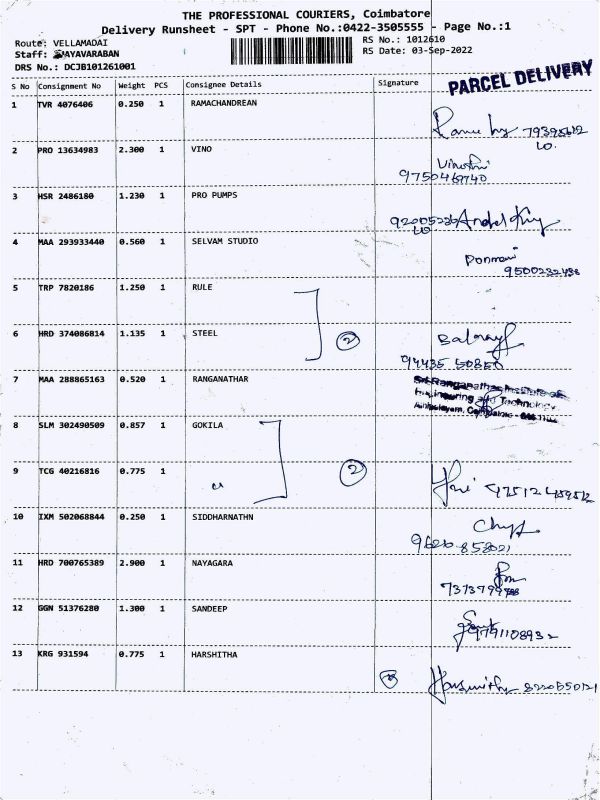 THE PROFESSIONAL COURIERS, Coimbatore
Delivery Runsheet - SPT - Phone No.:0422-3505555 - Page No.:1
Route: VELLAMADAI
RS No.: 1012610
Staff: MAYAVARABAN
RS Date: 03-Sep-2022
DRS No.: DCJB101261001
PARCEL DELIVERY
S No Consignment No Weight PCS Consignee Details Signature
1 TVR 4076406 0.250 1 RAMACHANDREAN
2 PRO 13634983 2.300 1 VINO
9750467740
3 HSR 2486180 1.230 1 PRO PUMPS
4 MAA 293933440 0.560 1 SELVAM STUDIO
Ponmani
9500232488
5 TRP 7820186 1.250 1 RULE
6 HRD 374086814 1.135 1 STEEL
2
94435 50850
7 MAA 288865163 0.520 1 RANGANATHAR
Sri Ranganathar Institute of
Engineering and Technology
8 SLM 302490509 0.857 1 GOKILA
9 TCG 40216816 0.775 1 "
2
10 IXM 502068844 0.250 1 SIDDHARNATHN
11 HRD 700765389 2.900 1 NAYAGARA
12 GGN 51376280 1.300 1 SANDEEP
9791108932
13 KRG 931594 0.775 1 HARSHITHA
8220550121